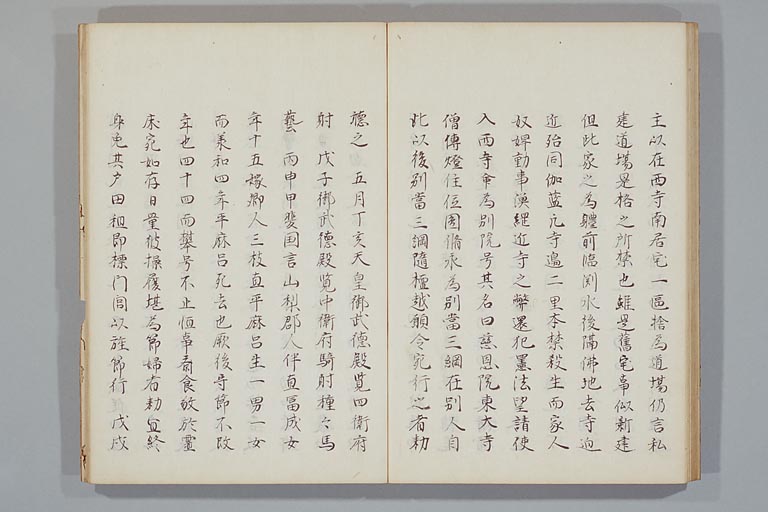 主以在西寺南居宅一區捨為道場仍言私
建道場是格之所禁也雖是舊宅事似新建
但此家之為體前臨測水後隣佛地去寺迫
近殆同伽藍凡寺邊二里本禁殺生而家人
奴婢動事漁網近寺之弊還犯墨法望請使
入西寺會為別院号其名曰慈恩院東大寺
僧傳燈住位圓脩永為別當三綱在別人自
此以後別當三綱隨檀越願令宛行之者勅
聴之 五月丁亥天皇御武徳殿覧四衛府
射 戊子御武徳殿覧中衛府騎射種々馬
藝 丙申甲斐国言山梨郡人伴直富成女
年十五嫁郷人三枝直平麻呂生一男一女
而羕和四年平麻呂死去也厥後守節不改
年也四十四而攀号不止恒事齋食敬於靈
床宛如存日量彼操履堪為節婦者勅宜終
身免其户田租即標门閭以旌節行 戊戌